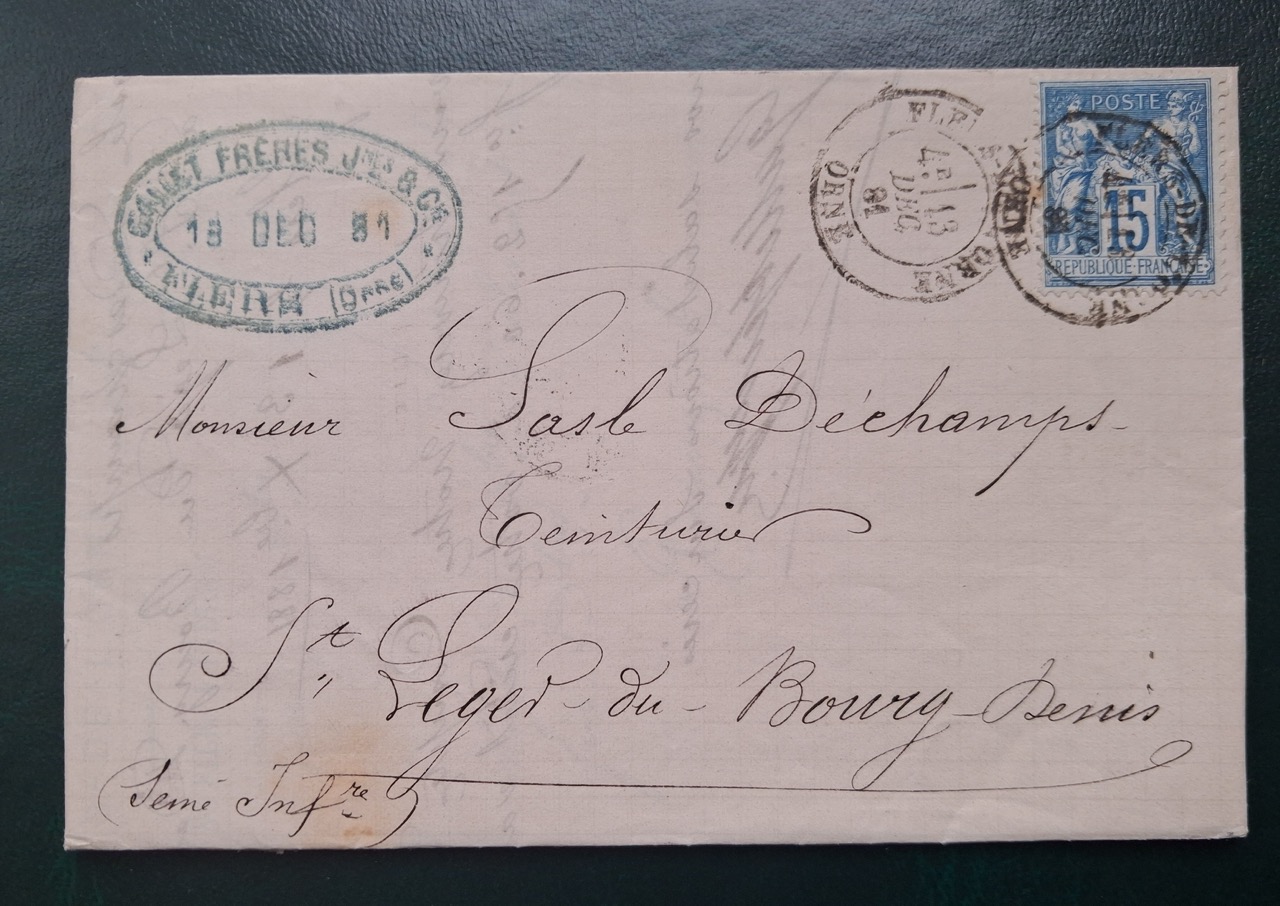 FRÈRES JNES & CE
DEC 81
FLERS (Orne)
FLERS-DE-L'ORNE
4E 13
DEC
81
ORNE
POSTE
15
RÉPUBLIQUE FRANÇAISE
Monsieur Lasle Déchamps-
Teinturier
St Leger-du-Bourg-Denis
(Seine Infre)